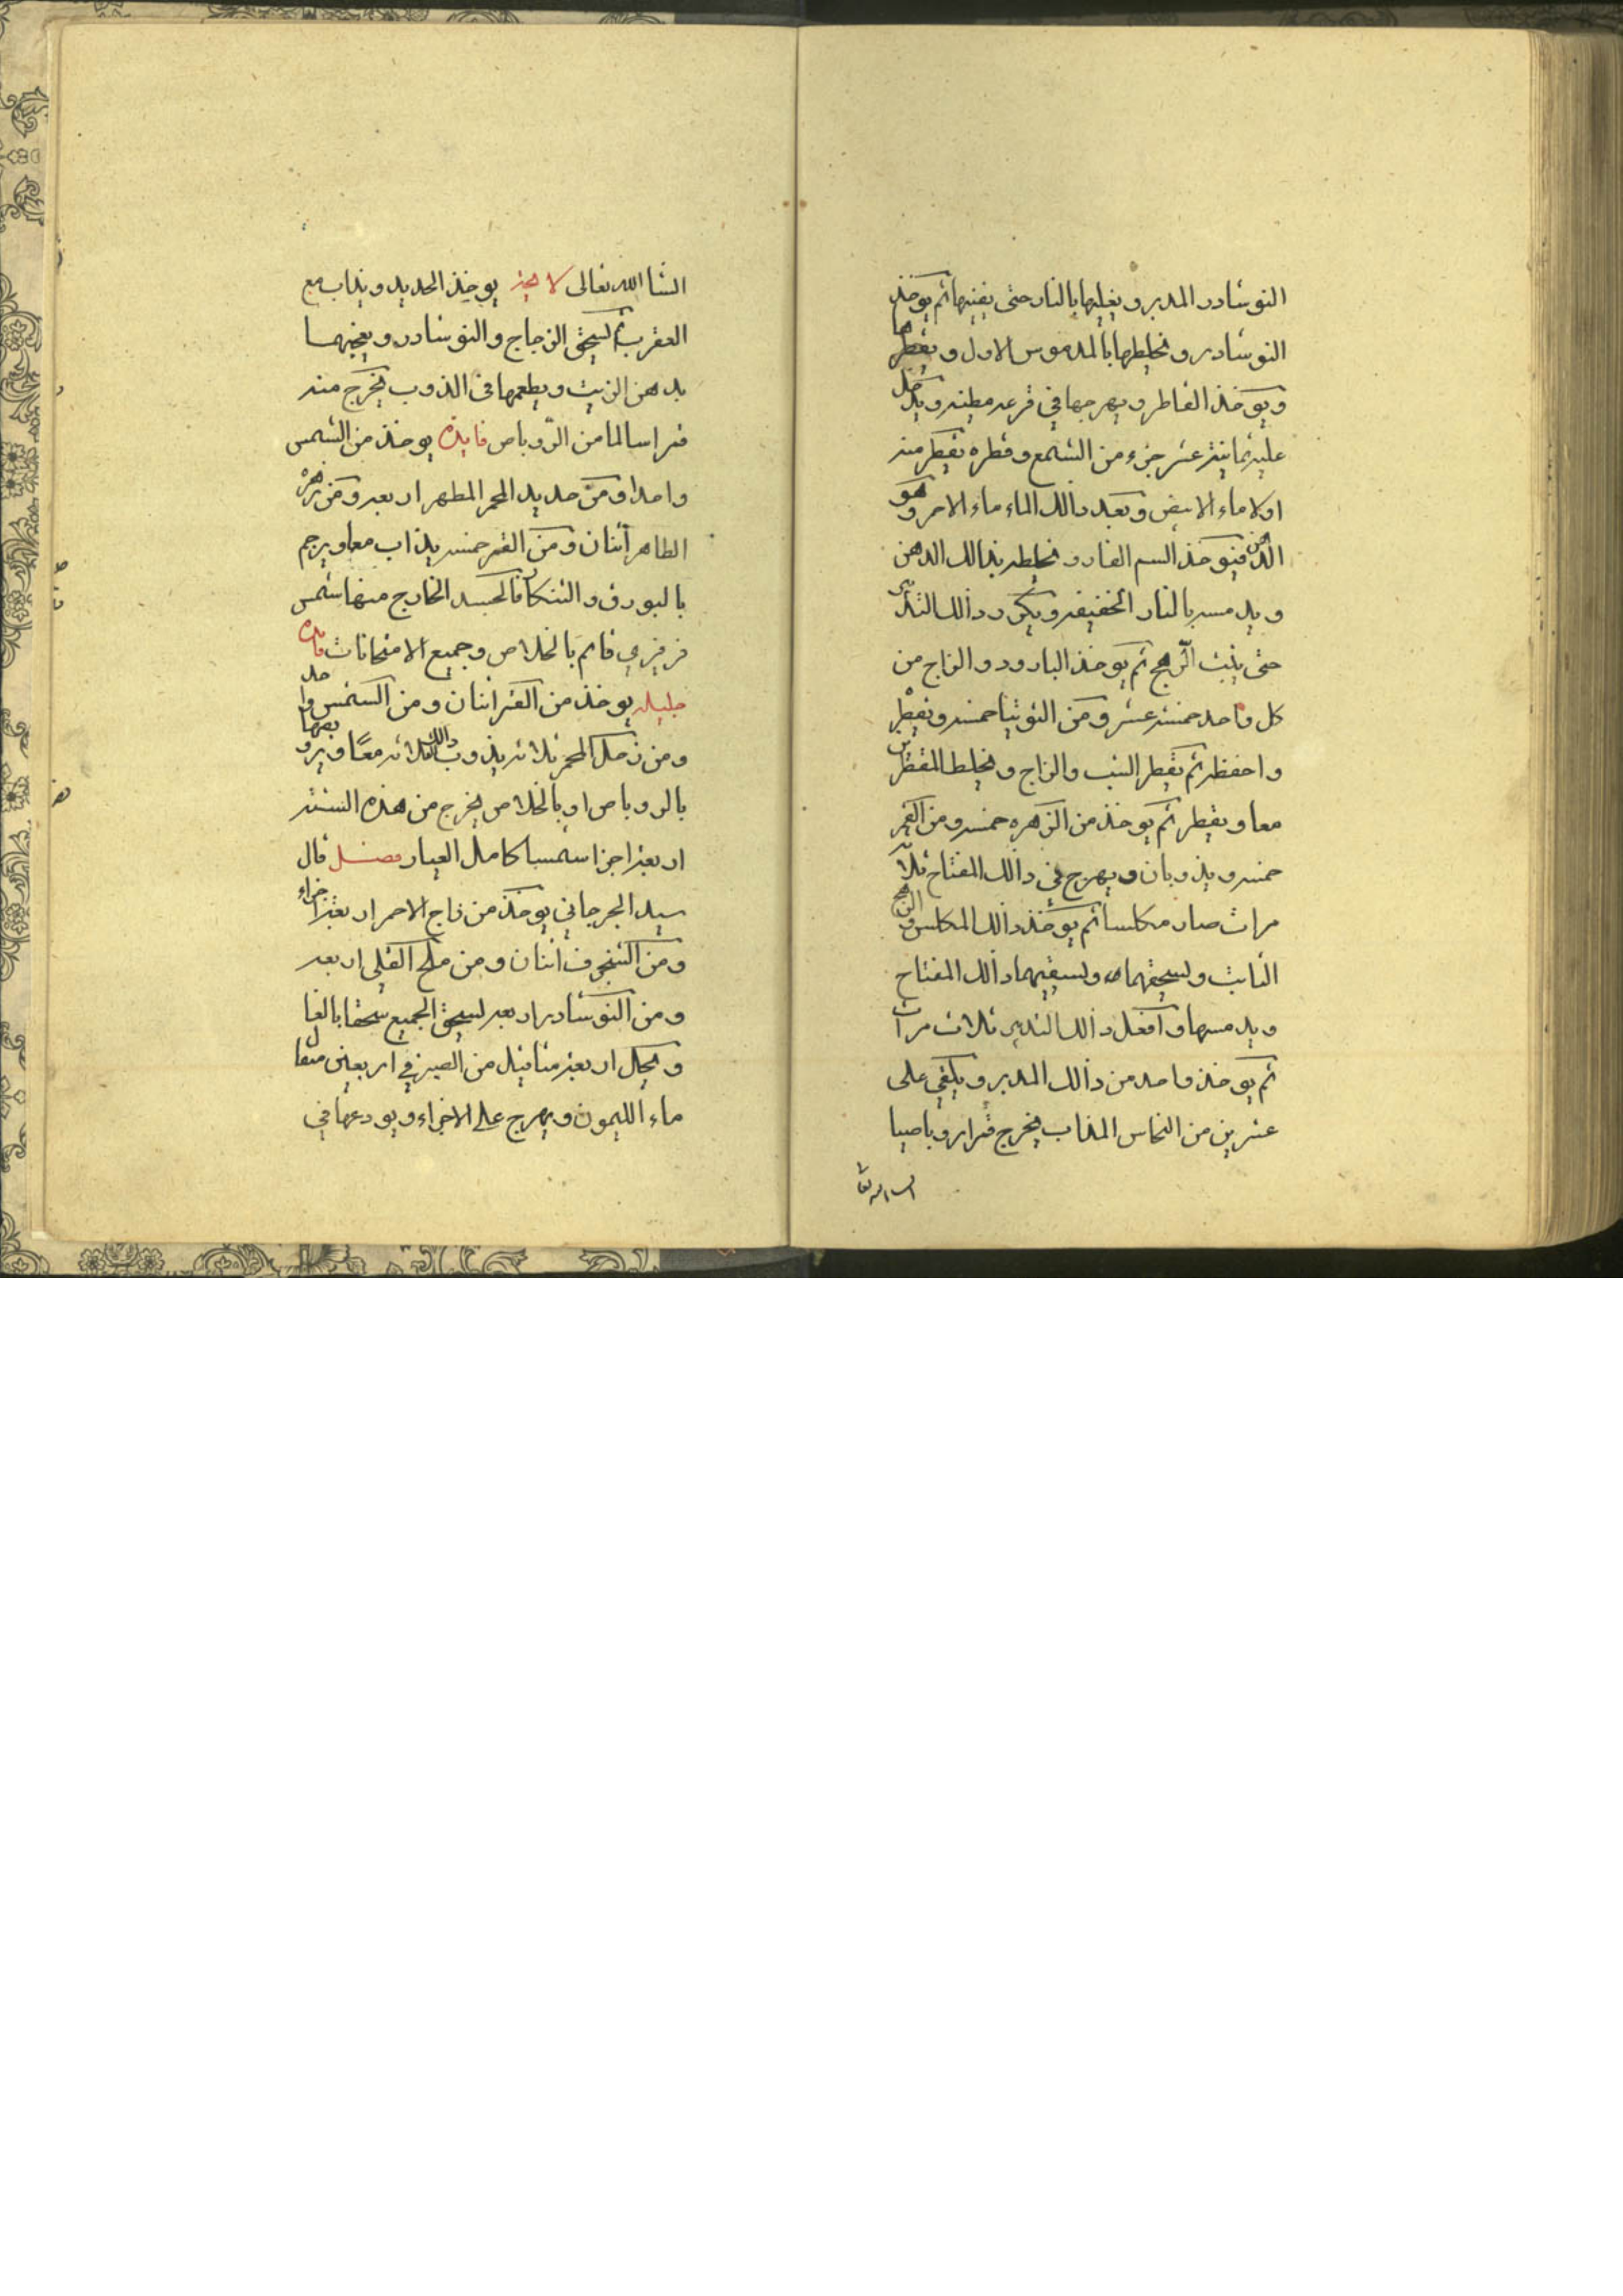 النوشادر المدبر و يغليها بالنار حتى يفنيها ثم يوخذ
النوشادر و يخلطها بالمدموس الاول و يقطرها
و يوخذ القاطر و يهرجها في قرعه مطينه و يدخل
عليه ثمانية عشر جزء من الشمع و قطره يقطر منه
اولا ماء الابيض و بعد دالك الماء ماء الاحمر و هو
الدهن فيوخذ السم الفار و يخلطه بذالك الدهن
و يدمسه بالنار الخفيفه و يكرر دالك التدبير
حتى يثبت الرهج ثم يوخذ البارود و الزاج من
كل واحد خمسة عشر و من التوتيا خمسه و يقطر
و احفظه ثم يقطر الشب و الزاج و يخلط المقطرين
معا و يقطر ثم يوخذ من الزهره خمسه و من القمر
خمسه و يذوبان و يهرج في دالك المفتاح ثلاث
مرات صار مكلسا ثم يوخذ دالك المكلس و الرهج
الثابت و يسحقهما و يسقيهما دالك المفتاح
و يدمسها و افعل دالك التدبير ثلاث مرات
ثم يوخذ واحد من دالك المدبر و يلقي على
عشرين من النحاس المذاب يخرج قمرا روباصيا
انشا الله تعالى لاجيه يوخذ الحديد و يذاب مع
العقرب ثم يسحق الزجاج و النوشادر و يعجنهما
بدهن الزيت و يطعمها في الذوب يخرج منه
قمرا سالما من الروباص فايده يوخذ من الشمس
واحدا و من حديد المحمر المطهر اربعه و من زهره
الطاهر اثنان و من القمر خمسه يذاب معا و يرجم
بالبورق و التنكار فالجسد الخارج منها شمس
قايم بالخلاص و جميع الامتحانات فايده
جليله يوخذ من القمر اثنان و من الشمس واحد
و من زحل المحمر ثلاثه يذوب دالك ثلاثه معا و يروبصها
بالروباص او بالخلاص يخرج من هذه الستة
اربعة اجزا شمسا كامل العيار فصل قال
سيد الجرجاني يوخذ من زاج الاحمر اربعة اجزاء
و من الشنجرف اثنان و من ملح القلي اربعه
و من النوشادر اربعه يسحق الجميع سحقا بالغا
و يحل اربعة مثاقيل من الصبر في اربعين مثقال
ماء الليمون و يهرج على الاجزاء و يودعها في